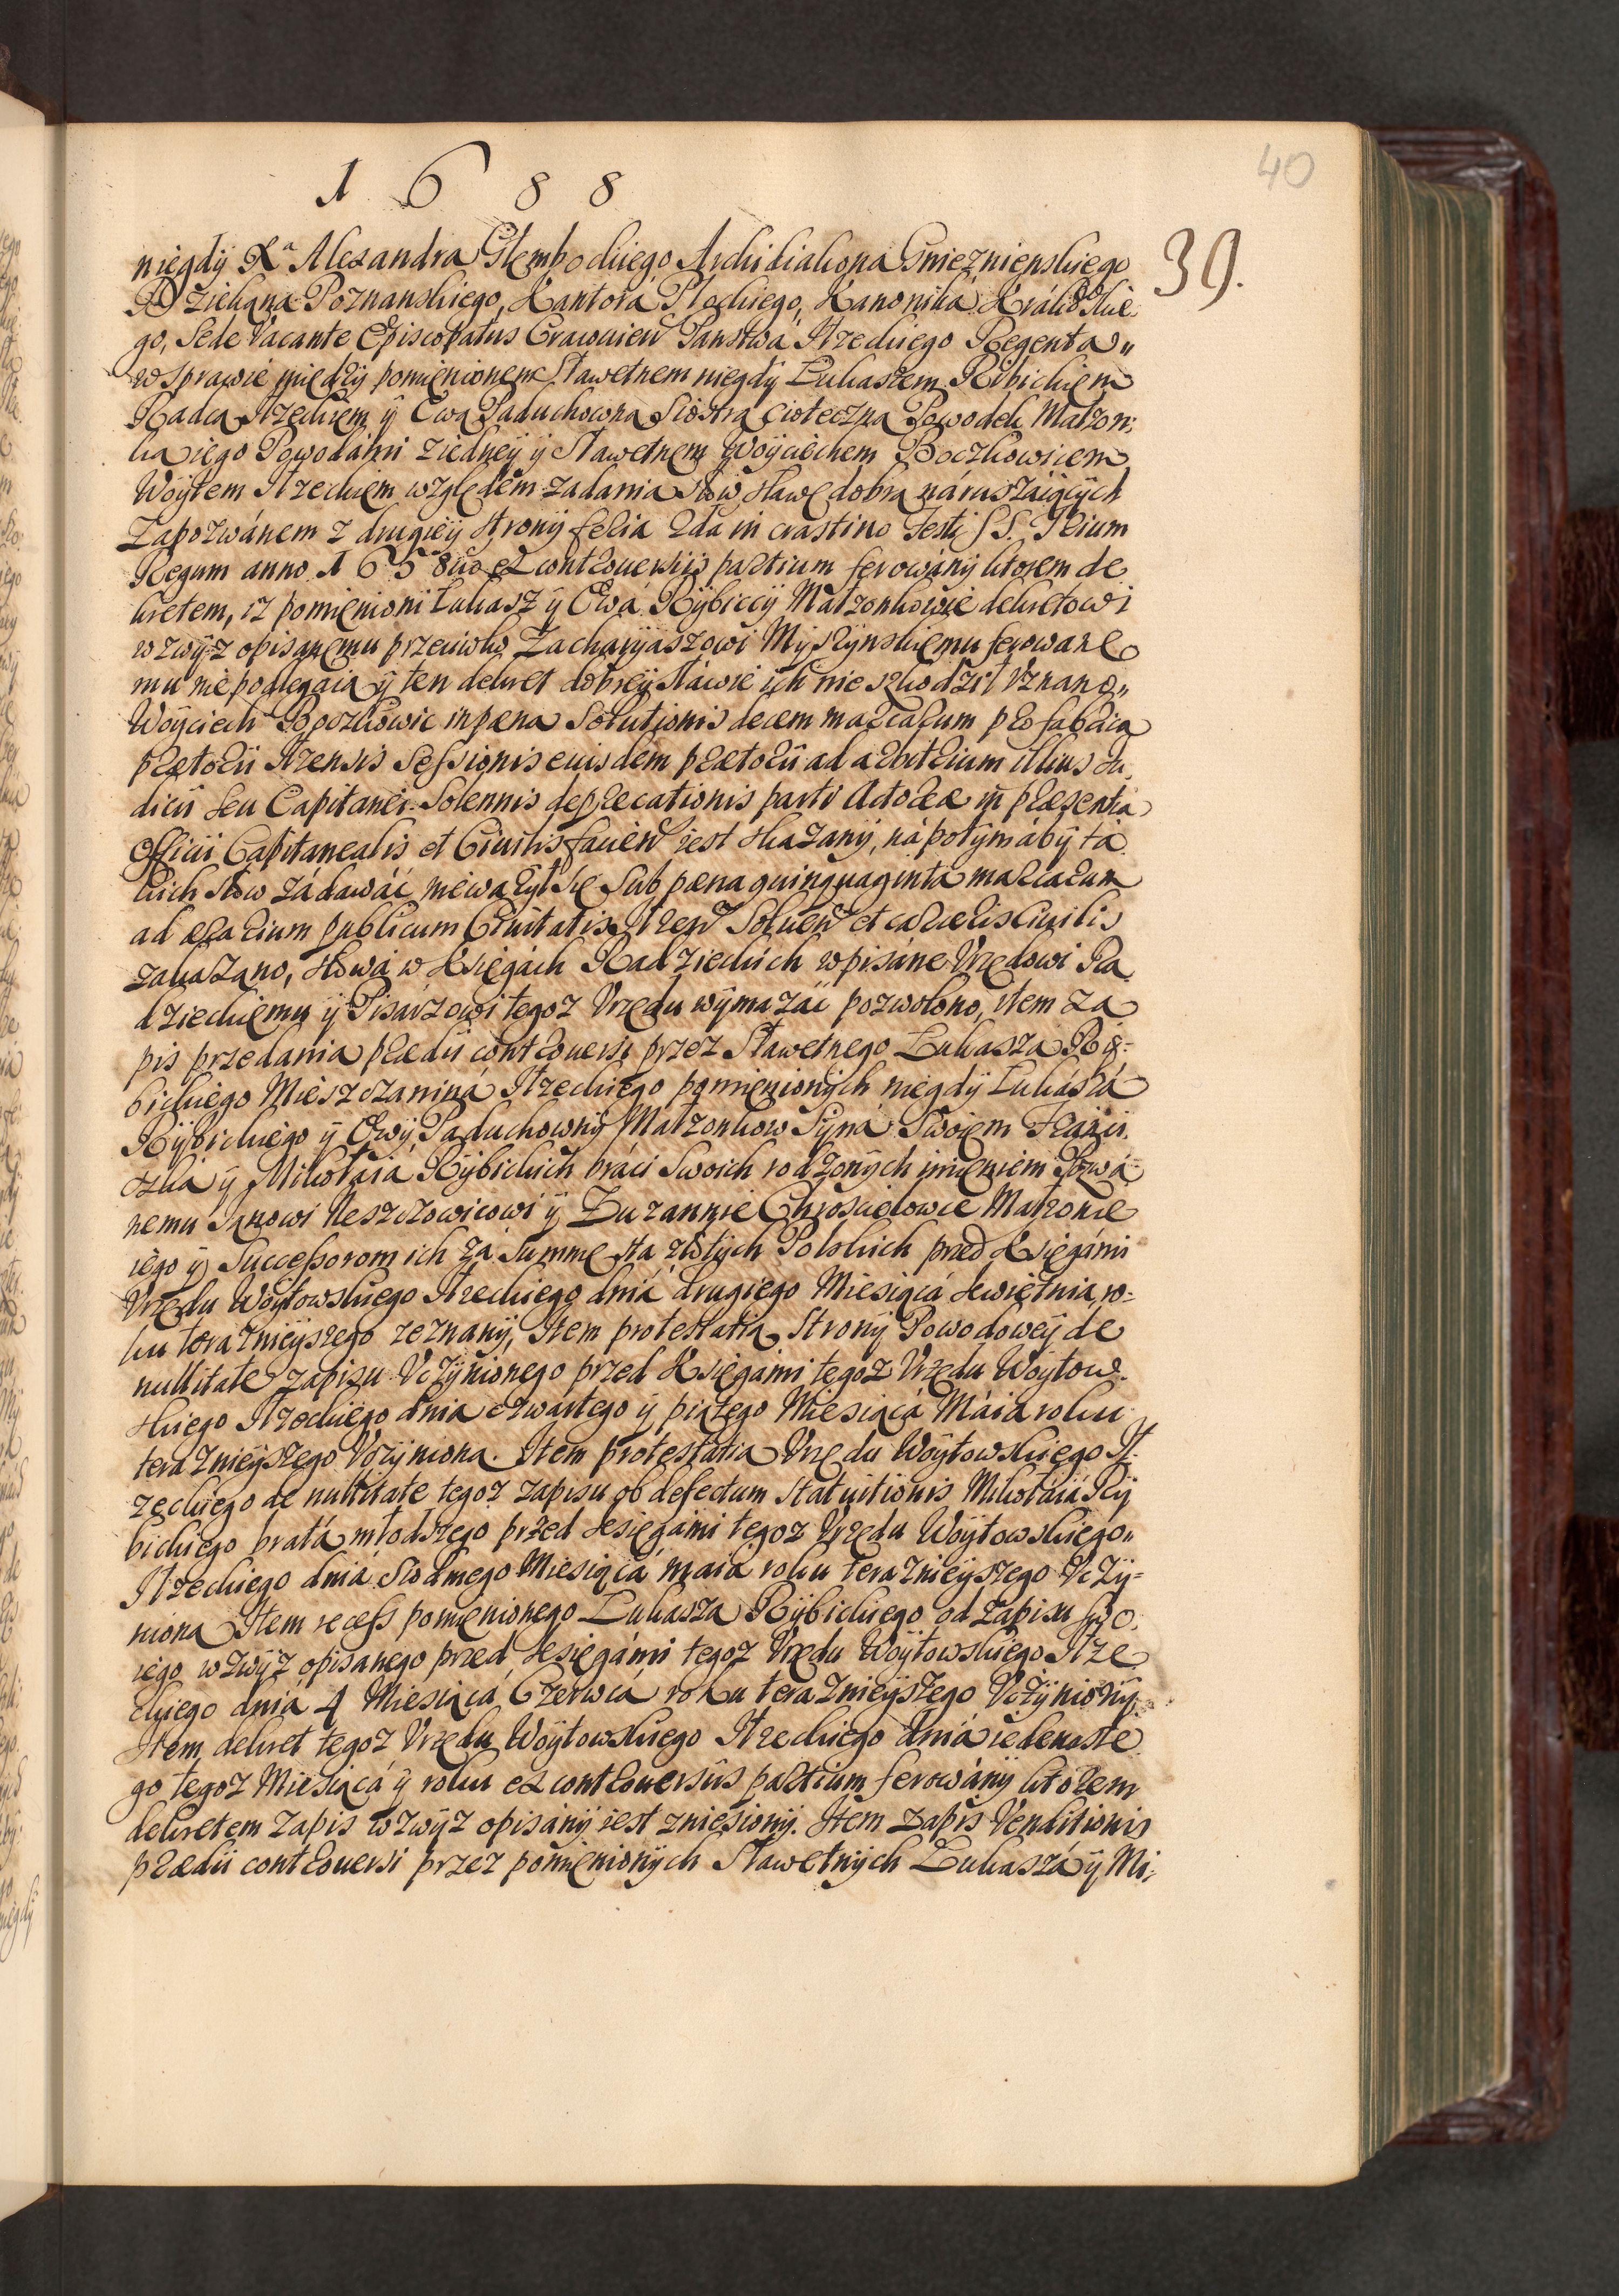 1688
40
39.
niegdÿ Xa Alexandra Glembockiego Archidiakona Gnieznienskiego
Dziekana Poznanskiego, Kantora Plockiego, Kanonika Krákowskie-
go, Sede Vacante Episcopatus Cracovien Panstwá Itzeckiego Regenta„
w Sprawie międzÿ pomienionem Sławetnem niegdÿ Łukaszem Ribickiem
Radcą Itzeckiem ÿ Ewą Paduchowną Siostrą Ciotęczną Powodek Małzon:
ką iego Powodámi z iedneÿ ÿ Sławetnem Woÿciechem Boczkowicem
Woÿtem Itzeckiem względem zadania słow sławę dobrą náruszáiących
Zapozwánem z drugieÿ stronÿ feria 2da in crastino Festi SS. Trium
Regum anno 1658uo ex controuersiis partium ferowánÿ ktorem de
kretem, iz pomienioni Łukasz ÿ Ewá Rÿbiccÿ Małzonkowie dekretowi
wzwÿz opisanemu przeciwko Zacharÿaszowi Mÿszÿnskiemu ferowane
mu nie podlegaią ÿ ten dekret dobreÿ sławie ich nie szkodzi Vznano„
Woÿciech Boczkowic in pæna Solutionis decem marcarum pro fabrica
prætorii Itzensis Sessionis eiusdem prætorii ad arbitrium illius Ju
dicii seu Capitanei. Solennis deprecationis parti Actoreæ in præsentia
Officii Capitanealis et Ciuilis facien iest skazanÿ, ná potÿm ábÿ ta
kich słow zádawáć niewazÿł się Sub pæna quinquaginta marcarum
ad ærarium publicum Ciuitatis Itzen Soluen et carceris Ciuilis
zakazano, słowa w Xsięgách Radzieckich wpisáne Vrzędowi Ra
dzieckiemu ÿ Pisárzowi tegoz Vrzędu wÿmazáć pozwolono, item za
pis przedania prædii controuersi przez Sławetnego Łukasza Rÿ-
bickiego Mieszczaniná Itzeckiego pomienionÿch niegdÿ Łukászá
Rÿbickiego ÿ Ewÿ Paduchownÿ Małzonkow Sÿná Swoiem Fránci
szká ÿ Mikołáiá Rÿbickich bráci Swoich rodzonÿch imieniem Pozwá-
nemu Janowi Neszczowicowi ÿ Zuzannie Chroscielowce Małzonce
iego ÿ Successorom ich zá Summę sta złotÿch Polskich przed Xsięgámi
Vrzędu Woÿtowskiego Itzeckiego dniá drugiego Miesiącá kwietnia ro-
ku teraznieÿszego zeznanÿ, Item protestatia Stronÿ Powodoweÿ de
nullitate zapisu Vczÿnionego przed Xsięgámi tegoz Vrzędu Woÿtow-
skiego Itzeckiego dnia czwartego ÿ piątego Miesiącá Máia roku
teraznieÿszego Vczÿniona. Item protestatia Vrzędu Woÿtowskiego It-
zeckiego de nullitate tegoz zapisu ob defectum statuitionis Mikołáiá Rÿ
bickiego bratá młodszego przed xsięgámi tegoz Vrzędu Woÿtowskiego„
Itzeckiego dniá Siodmego Miesiącá maia roku teraznieÿszego Vczÿ-
niona Item recess pomienionego Łukasza Rÿbickiego od zapisu swo-
iego wzwÿz opisanego przed xsięgámi tegoz Vrzędu Woÿtowskiego Itze
ckiego dniá 4 Miesiącá Czerwcá roku teraznieÿszego Vczÿnionÿ.
Item dekret tegoz Vrzędu Woÿtowskiego Itzeckiego dniá iedenaste
go tegoz Miesiącá ÿ roku ex controuersiis partium ferowánÿ ktorem
dekretem zapis wzwÿz opisánÿ iest zniesionÿ. Item zapis Venditionis
prædii controuersi przez pomienionÿch Sławetnÿch Łukaszá ÿ Mi-